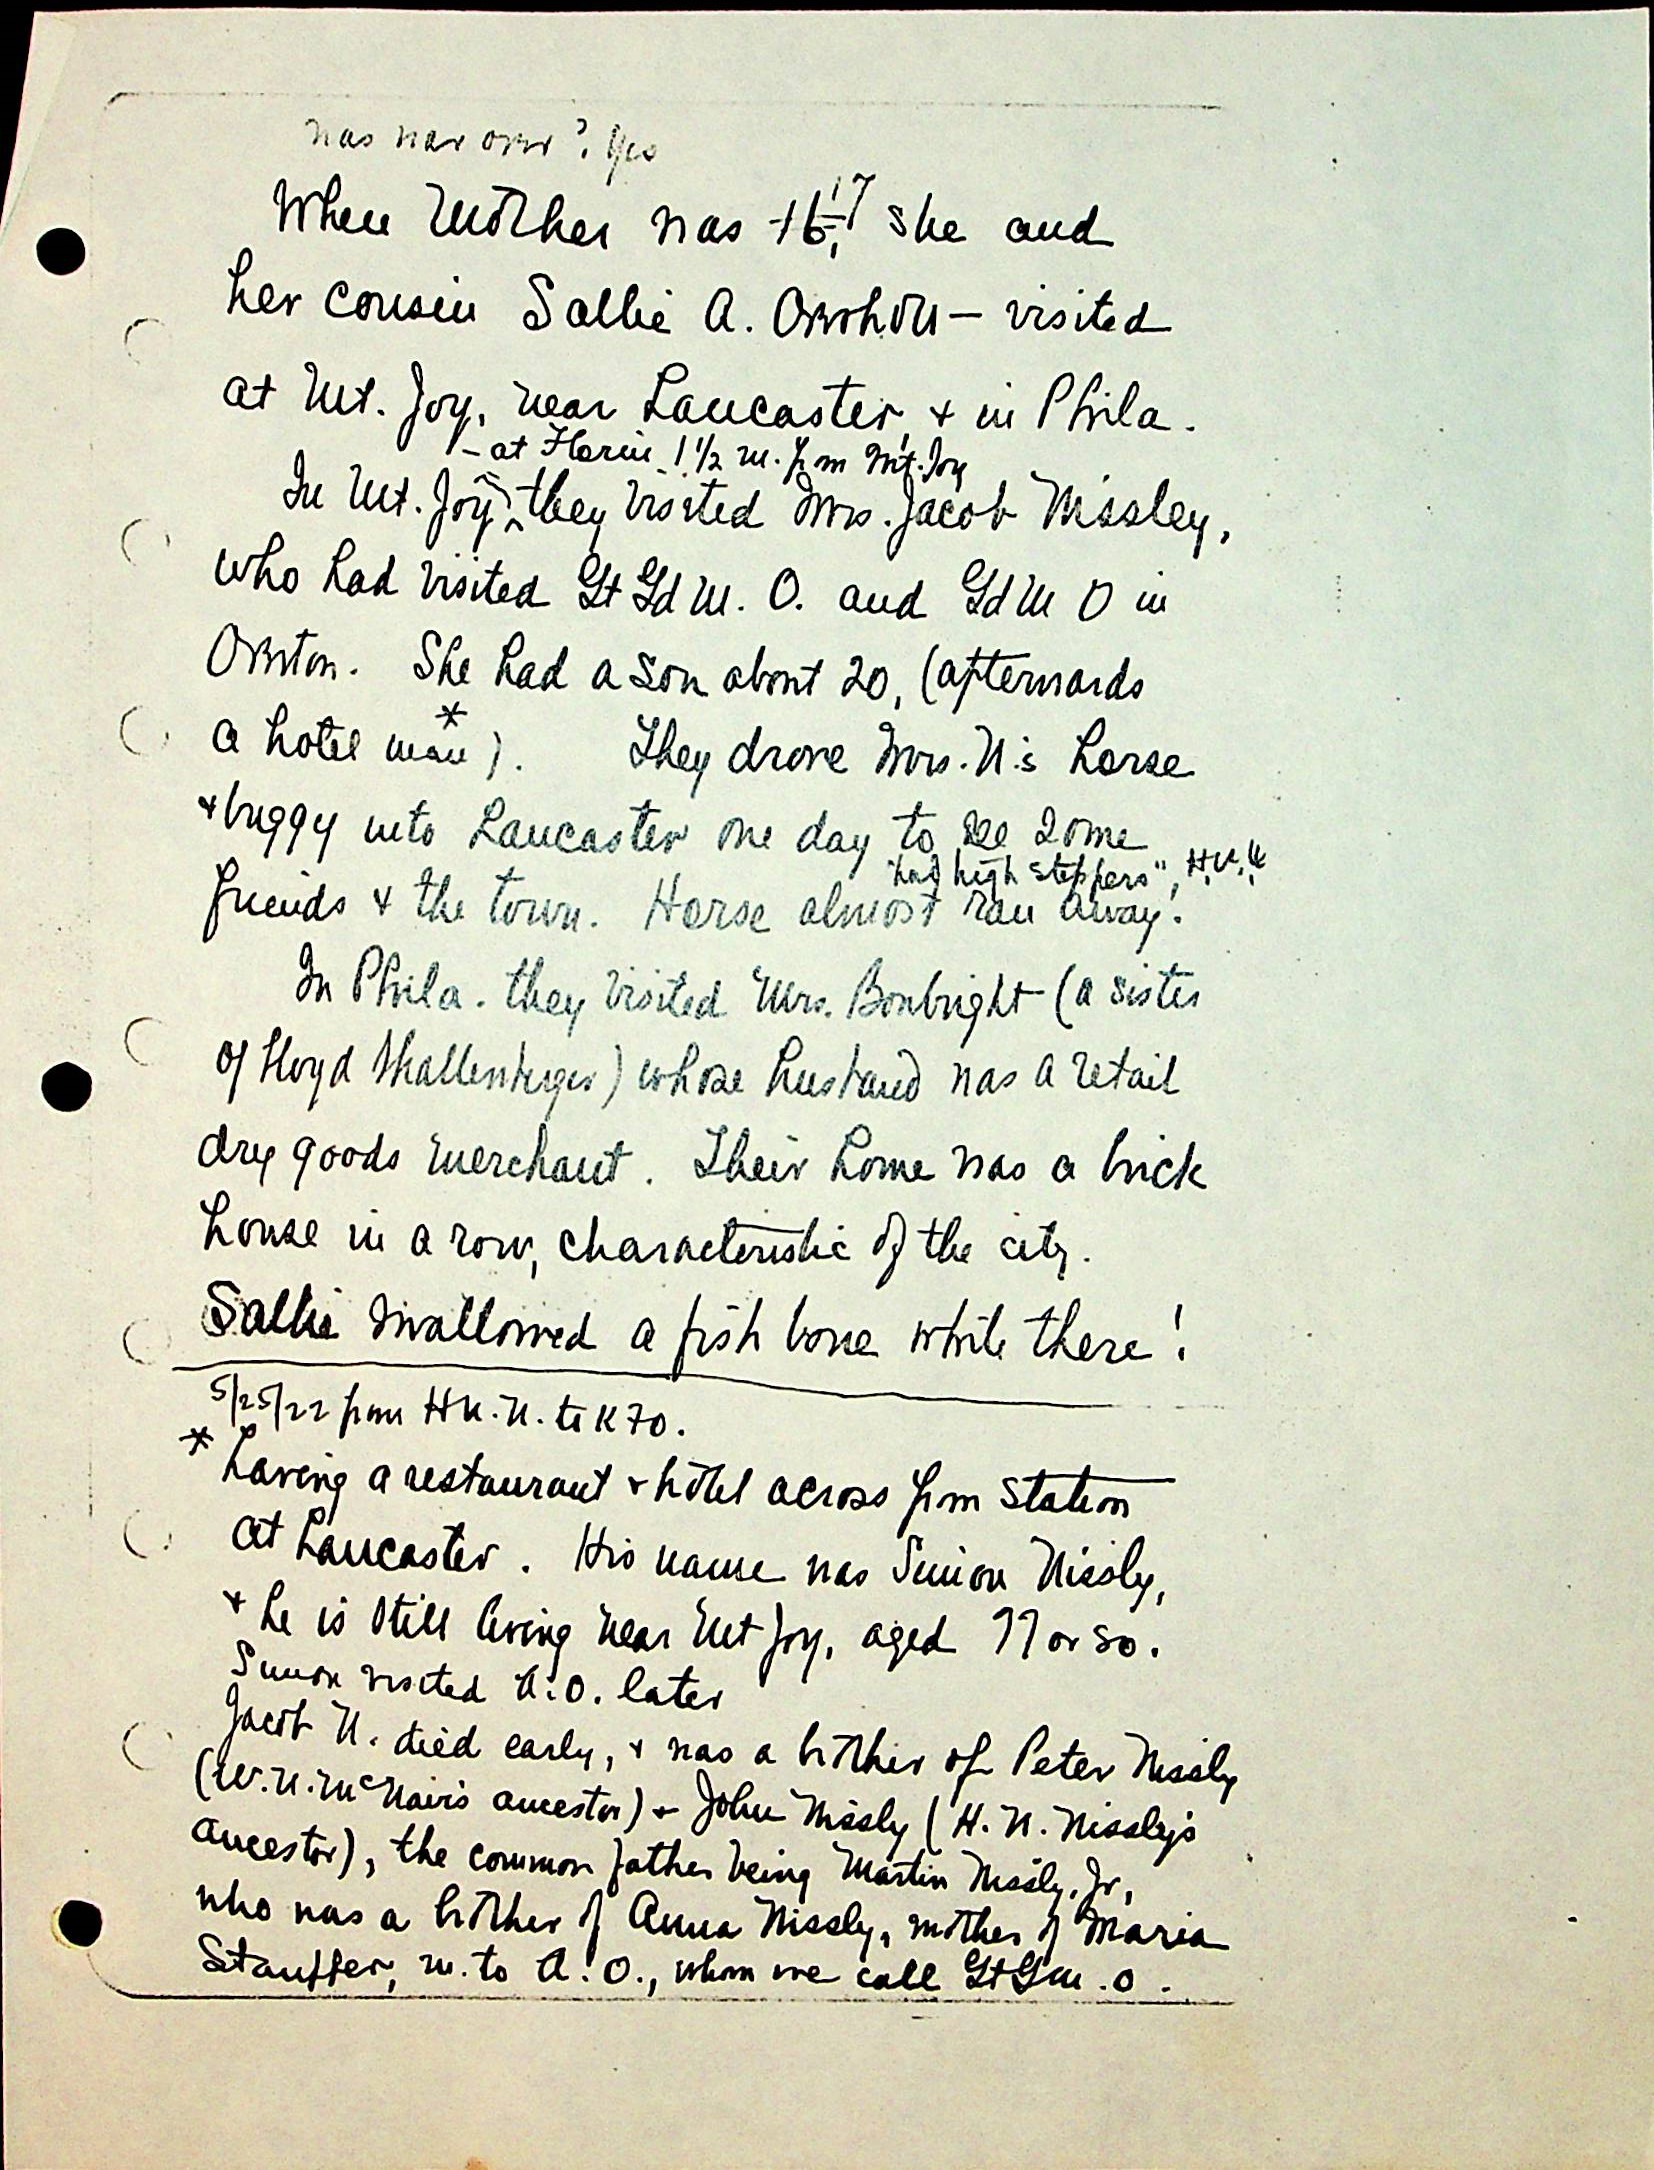 was war over? Yes
When Mother was 16, 17 she and
her cousin Sallie A. Overholt – visited
at Mt. Joy, near Lancaster, + in Phila.
– at Florin 1 1/2 m. from Mt. Joy
In Mt. Joy they visited Mrs. Jacob Nissley,
who had visited Gt Gd M. O. and Gd M O in
Overton. She had a son about 20, (afterwards
a hotel man*). They drove Mrs. N's horse
+ buggy into Lancaster one day to see some
"had high steppers",
friends + the town. Horse almost ran away!
In Phila. they visited Mrs. Bonbright (a sister
of Lloyd Shallenberger) whose husband was a retail
dry goods merchant. Their home was a brick
house in a row, characteristic of the city.
Sallie swallowed a fish bone while there!
5/25/22 from H N. N. to K 70.
* having a restaurant + hotel across from station
at Lancaster. His name was Simon Nissly,
+ he is still living near Mt Joy, aged 77 or so.
Simon visited A. O. later
Jacob N. died early, + was a brother of Peter Nissly
(W. N. McNair's ancestor) + John Nissly (H. N. Nissly's
ancestor), the common father being Martin Nissly, Jr,
who was a brother of Anna Nissly, mother of Maria
Stauffer, m. to A. O., whom we call Gt G M. O.